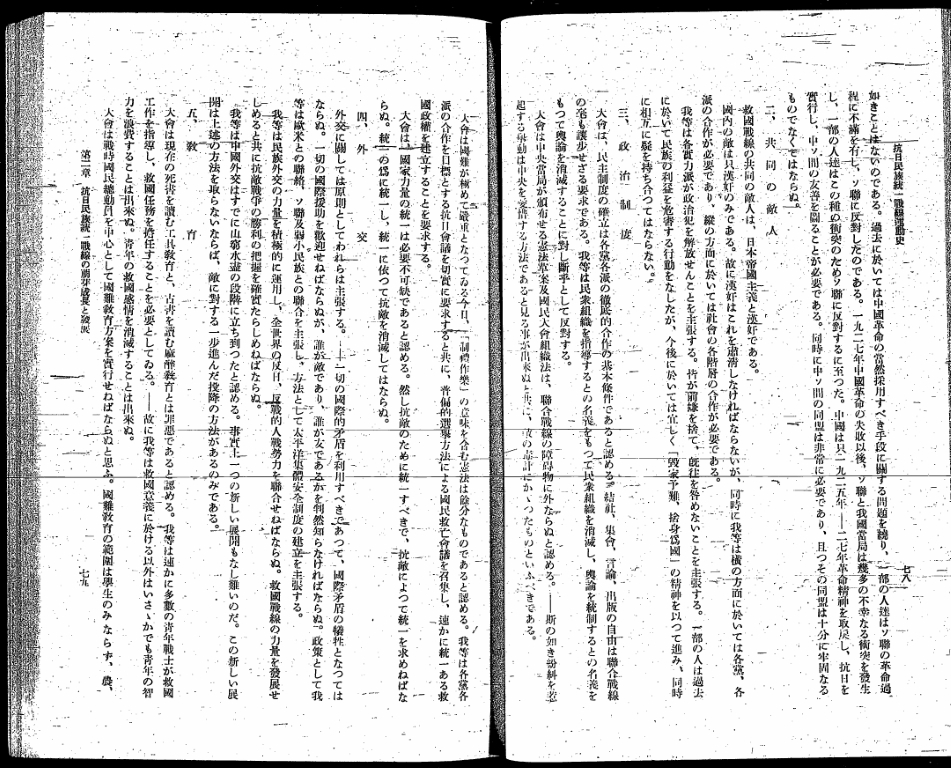 抗日民族統一戰線運動史
七八
如きことはないのである。過去に於いては中國革命の當然採用すべき手段に關する問題を繞り、一部の人達はソ聯の革命過
程に不滿を有し、ソ聯に反對したのである。一九二七年中國革命の失敗以後、ソ聯と我國當局は幾多の不幸なる衝突を發生
し、一部の人達はこの種の衝突のためソ聯に反對するに至つた。中國は只一九二五年——二七年革命精神を取戾し、抗日を
實行し、中ソ間の友善を圖ることが必要である。同時に中ソ間の同盟は非常に必要であり、且つその同盟は十分に牢固なる
ものでなくてはならぬ。
二、共同の敵人
救國戰線の共同の敵人は、日本帝國主義と漢奸である。
國內の敵は只漢奸のみである。故に漢奸はこれを肅淸しなければならないが、同時に我等は橫の方面に於いては各黨、各
派の合作が必要であり、縱の方面に於いては社會の各階層の合作が必要である。
我等は各實力派が政治犯を解放せんことを主張する。皆が前嫌を捨て、旣往を咎めないことを主張する。一部の人は過去
に於いて民族の利益を危害する行動をなしたが、今後に於いては宜しく「毀家予難、捨身爲國」の精神を以つて進み、同時
に相互に疑を持ち合つてはならない。
三、政治制度
大會は、民主制度の確立は各黨各派の徹底的合作の基本條件であると認める。結社、集會、言論、出版の自由は聯合戰線
の毫も讓步せざる要求である。我等は民衆組織を指導するとの名義をもつて民衆組織を消滅し、輿論を統制するとの名義を
もつて輿論を消滅することに對し斷乎として反對する。
大會は中央當局が頒布せる憲法草案及國民大會組織法は、聯合戰線の障碍物に外ならぬと認める。——斯の如き紛糾を惹
起する行動は中央を愛惜する方法であると見る事が出來ぬと共に、敵の毒計にかゝつたものといふべきである。
大會は國難が極めて嚴重となつてゐる今日、「制禮作樂」の意味を含む憲法は餘分なものであると認める。我等は各黨各
派の合作を目標とする抗日會議を切實に要求すると共に、普偏的選擧方法による國民救亡會議を召集し、速かに統一ある救
國政權を建立することを要求する。
大會は、國家力量の統一は必要不可缺であると認める。然し抗敵のために統一すべきで、抗敵によつて統一を求めねばな
らぬ。統一の爲に統一し、統一に依つて抗敵を消滅してはならぬ。
四、外交
外交に關しては原則としてわれらは主張する。——一切の國際的矛盾を利用すべきであつて、國際矛盾の犧牲となつては
ならぬ。一切の國際援助を歡迎せねばならぬが、誰が敵であり、誰が友であるかを判然知らなければならぬ。政策として我
等は歐米との聯絡、ソ聯及弱小民族との聯合を主張し、方法として太平洋集體安全制度の建立を主張する。
我等は民族外交の力量を積極的に運用し、全世界の反日、反戰的人戰勞力を聯合せねばならぬ。救國戰線の力量を發展せ
しめると共に抗敵戰爭の勝利の把握を確實たらしめねばならぬ。
我等は中國外交はすでに山窮水盡の段階に立ち到つたと認める。事實上一つの新しい展開もなし難いのだ。この新しい展
開は上述の方法を取らないならば、敵に對する一步進んだ投降の方法があるのみである。
五、敎育
大會は現在の死書を讀む工具敎育と、古書を讀む麻醉敎育とは罪惡であると認める。我等は速かに多數の靑年戰士が救國
工作を指導し、救國任務を擔任することを必要としてゐる。——故に我等は救國意義に於ける以外はいさゝかでも靑年の智
力を浪費することは出來ぬ。靑年の救國感情を消滅することは出來ぬ。
大會は戰時國民總動員を中心として國難敎育方案を實行せねばならぬと思ふ。國難敎育の範圍は學生のみならず、農、
第二章 抗日民族統一戰線の萠芽成長と發展
七九